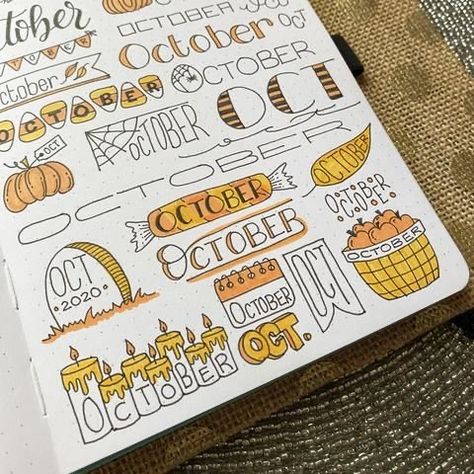 October
OCTOBER
OCTOBER
October
OCT
OCTOBER
October
OCTOBER
OCTOBER
OCTOBER
OCT
OCTOBER
OCT
OCTOBER
OCTOBER
OCTOBER
OCTOBER
OCTOBER
OCTOBER
OCTOBER
OCT
2020
OCTOBER
OCT
OCTOBER
OCT.